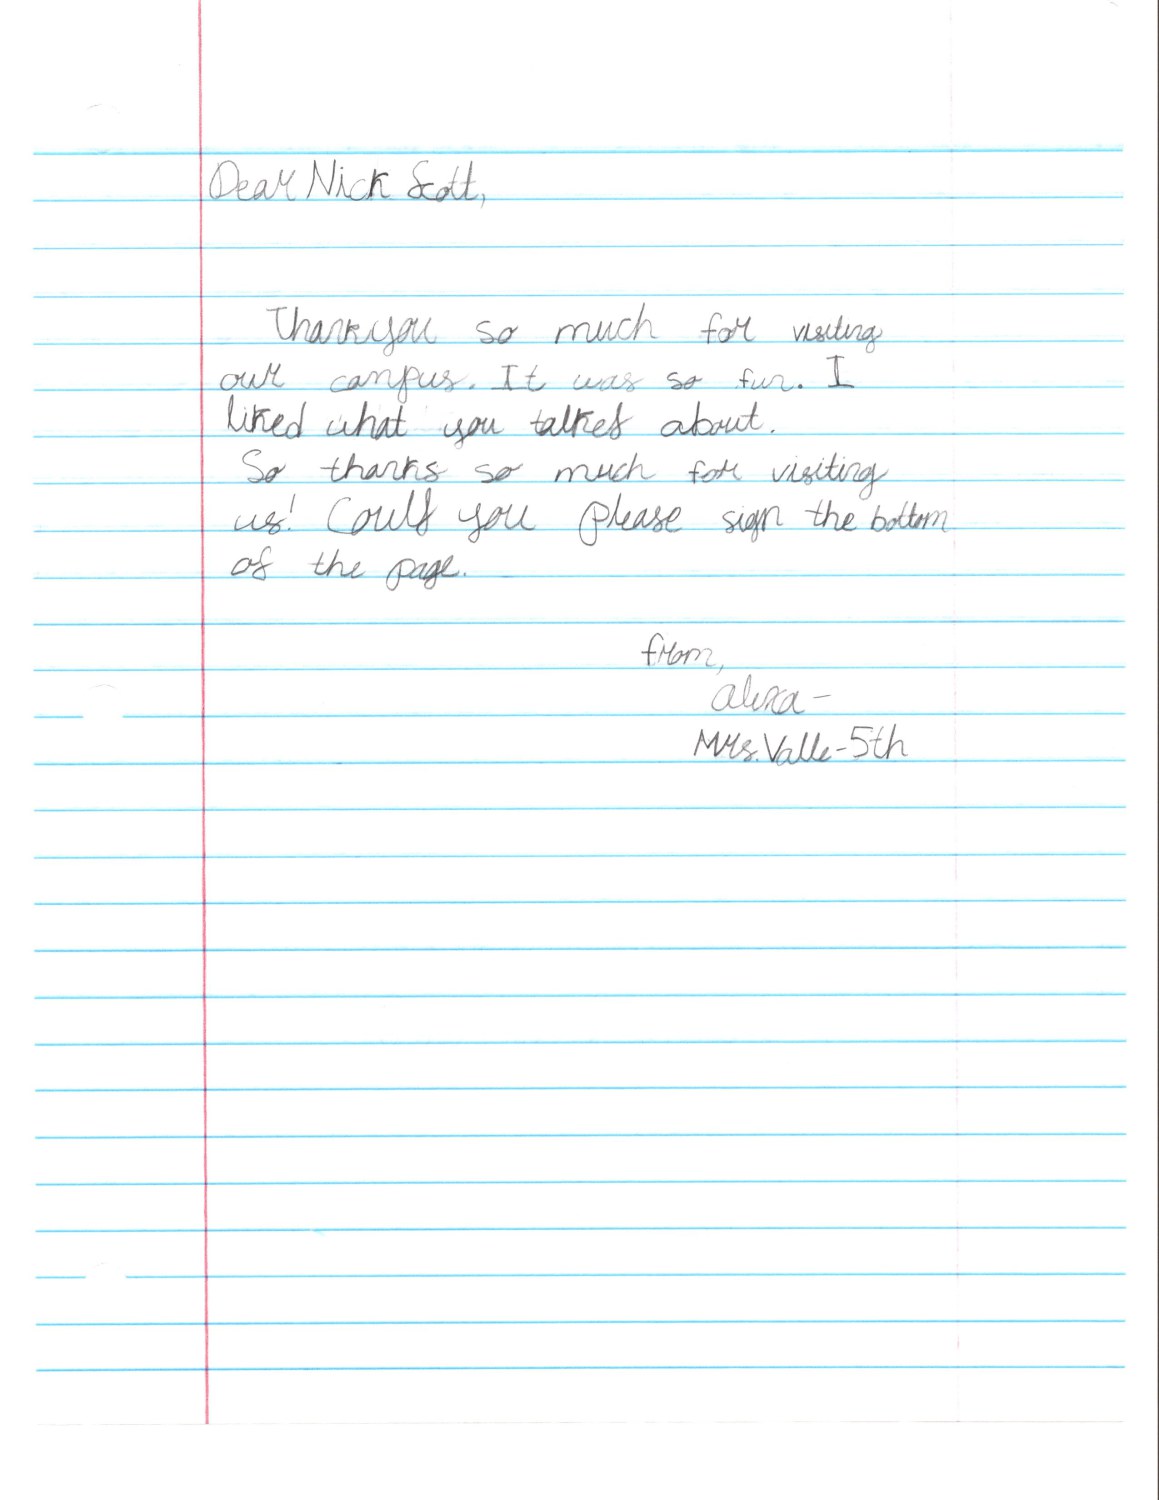 Dear Nick Scott,
Thankyou so much for visiting
our campus. It was so fun. I
liked what you talked about.
So thanks so much for visiting
us! Could you please sign the bottom
of the page.
from,
alexa-
Mrs. Valle-5th